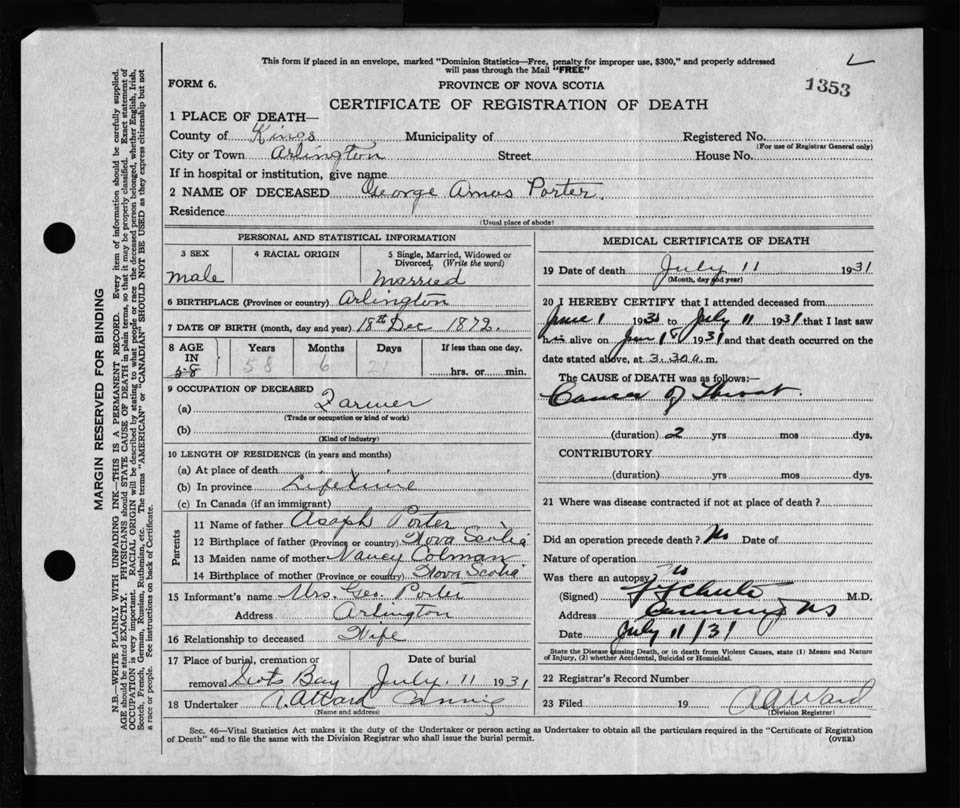 This form if placed in an envelope, marked "Dominion Statistics—Free, penalty for improper use, $300," and properly addressed
will pass through the Mail "FREE"
FORM 6.
PROVINCE OF NOVA SCOTIA
1353
CERTIFICATE OF REGISTRATION OF DEATH
1 PLACE OF DEATH—
County of Kings Municipality of Registered No.
(For use of Registrar General only)
City or Town Arlington Street House No.
If in hospital or institution, give name
2 NAME OF DECEASED George Amos Porter.
Residence
(Usual place of abode)
PERSONAL AND STATISTICAL INFORMATION
3 SEX 4 RACIAL ORIGIN 5 Single, Married, Widowed or
Divorced. (Write the word)
male Married
6 BIRTHPLACE (Province or country) Arlington
7 DATE OF BIRTH (month, day and year) 18th Dec 1872.
8 AGE Years Months Days If less than one day,
IN
58 58 6 21 hrs. or min.
9 OCCUPATION OF DECEASED
(a) Farmer
(Trade or occupation or kind of work)
(b)
(Kind of industry)
10 LENGTH OF RESIDENCE (in years and months)
(a) At place of death
(b) In province Lifetime
(c) In Canada (if an immigrant)
Parents
11 Name of father Asaph Porter
12 Birthplace of father (Province or country) Nova Scotia
13 Maiden name of mother Nancy Colman
14 Birthplace of mother (Province or country) Nova Scotia
15 Informant's name Mrs. Geo. Porter
Address Arlington
16 Relationship to deceased Wife
17 Place of burial, cremation or Date of burial
removal Scots Bay July. 11 1931
18 Undertaker Canning
(Name and address)
MEDICAL CERTIFICATE OF DEATH
19 Date of death July 11 1931
(Month, day and year)
20 I HEREBY CERTIFY that I attended deceased from
June 1 193 to July 11 1931 that I last saw
him alive on June 1931 and that death occurred on the
date stated above, at 3.30 a.m.
The CAUSE of DEATH was as follows:—
Cancer of Throat.
(duration) 2 yrs mos dys.
CONTRIBUTORY
(duration) yrs mos dys.
21 Where was disease contracted if not at place of death?
Did an operation precede death? No Date of
Nature of operation
Was there an autopsy? No
(Signed) M.D.
Address Canning NS
Date July 11/31
State the Disease causing Death, or in death from Violent Causes, state (1) Means and Nature
of Injury, (2) whether Accidental, Suicidal or Homicidal.
22 Registrar's Record Number
23 Filed 19 Ward
(Division Registrar)
Sec. 46—Vital Statistics Act makes it the duty of the Undertaker or person acting as Undertaker to obtain all the particulars required in the "Certificate of Registration
of Death" and to file the same with the Division Registrar who shall issue the burial permit.
(OVER)
MARGIN RESERVED FOR BINDING
N.B.—WRITE PLAINLY WITH UNFADING INK—THIS IS A PERMANENT RECORD. Every item of information should be carefully supplied.
AGE should be stated EXACTLY. PHYSICIANS should STATE CAUSE OF DEATH in plain terms, so that it may be properly classified. Exact statement of
OCCUPATION is very important. RACIAL ORIGIN will be described by stating to what people or race the deceased person belonged, whether English, Irish,
Scotch, French, German, Russian, Ruthenian, etc. The terms "AMERICAN" or "CANADIAN" SHOULD NOT BE USED as they express citizenship but not
a race or people. See instructions on back of Certificate.